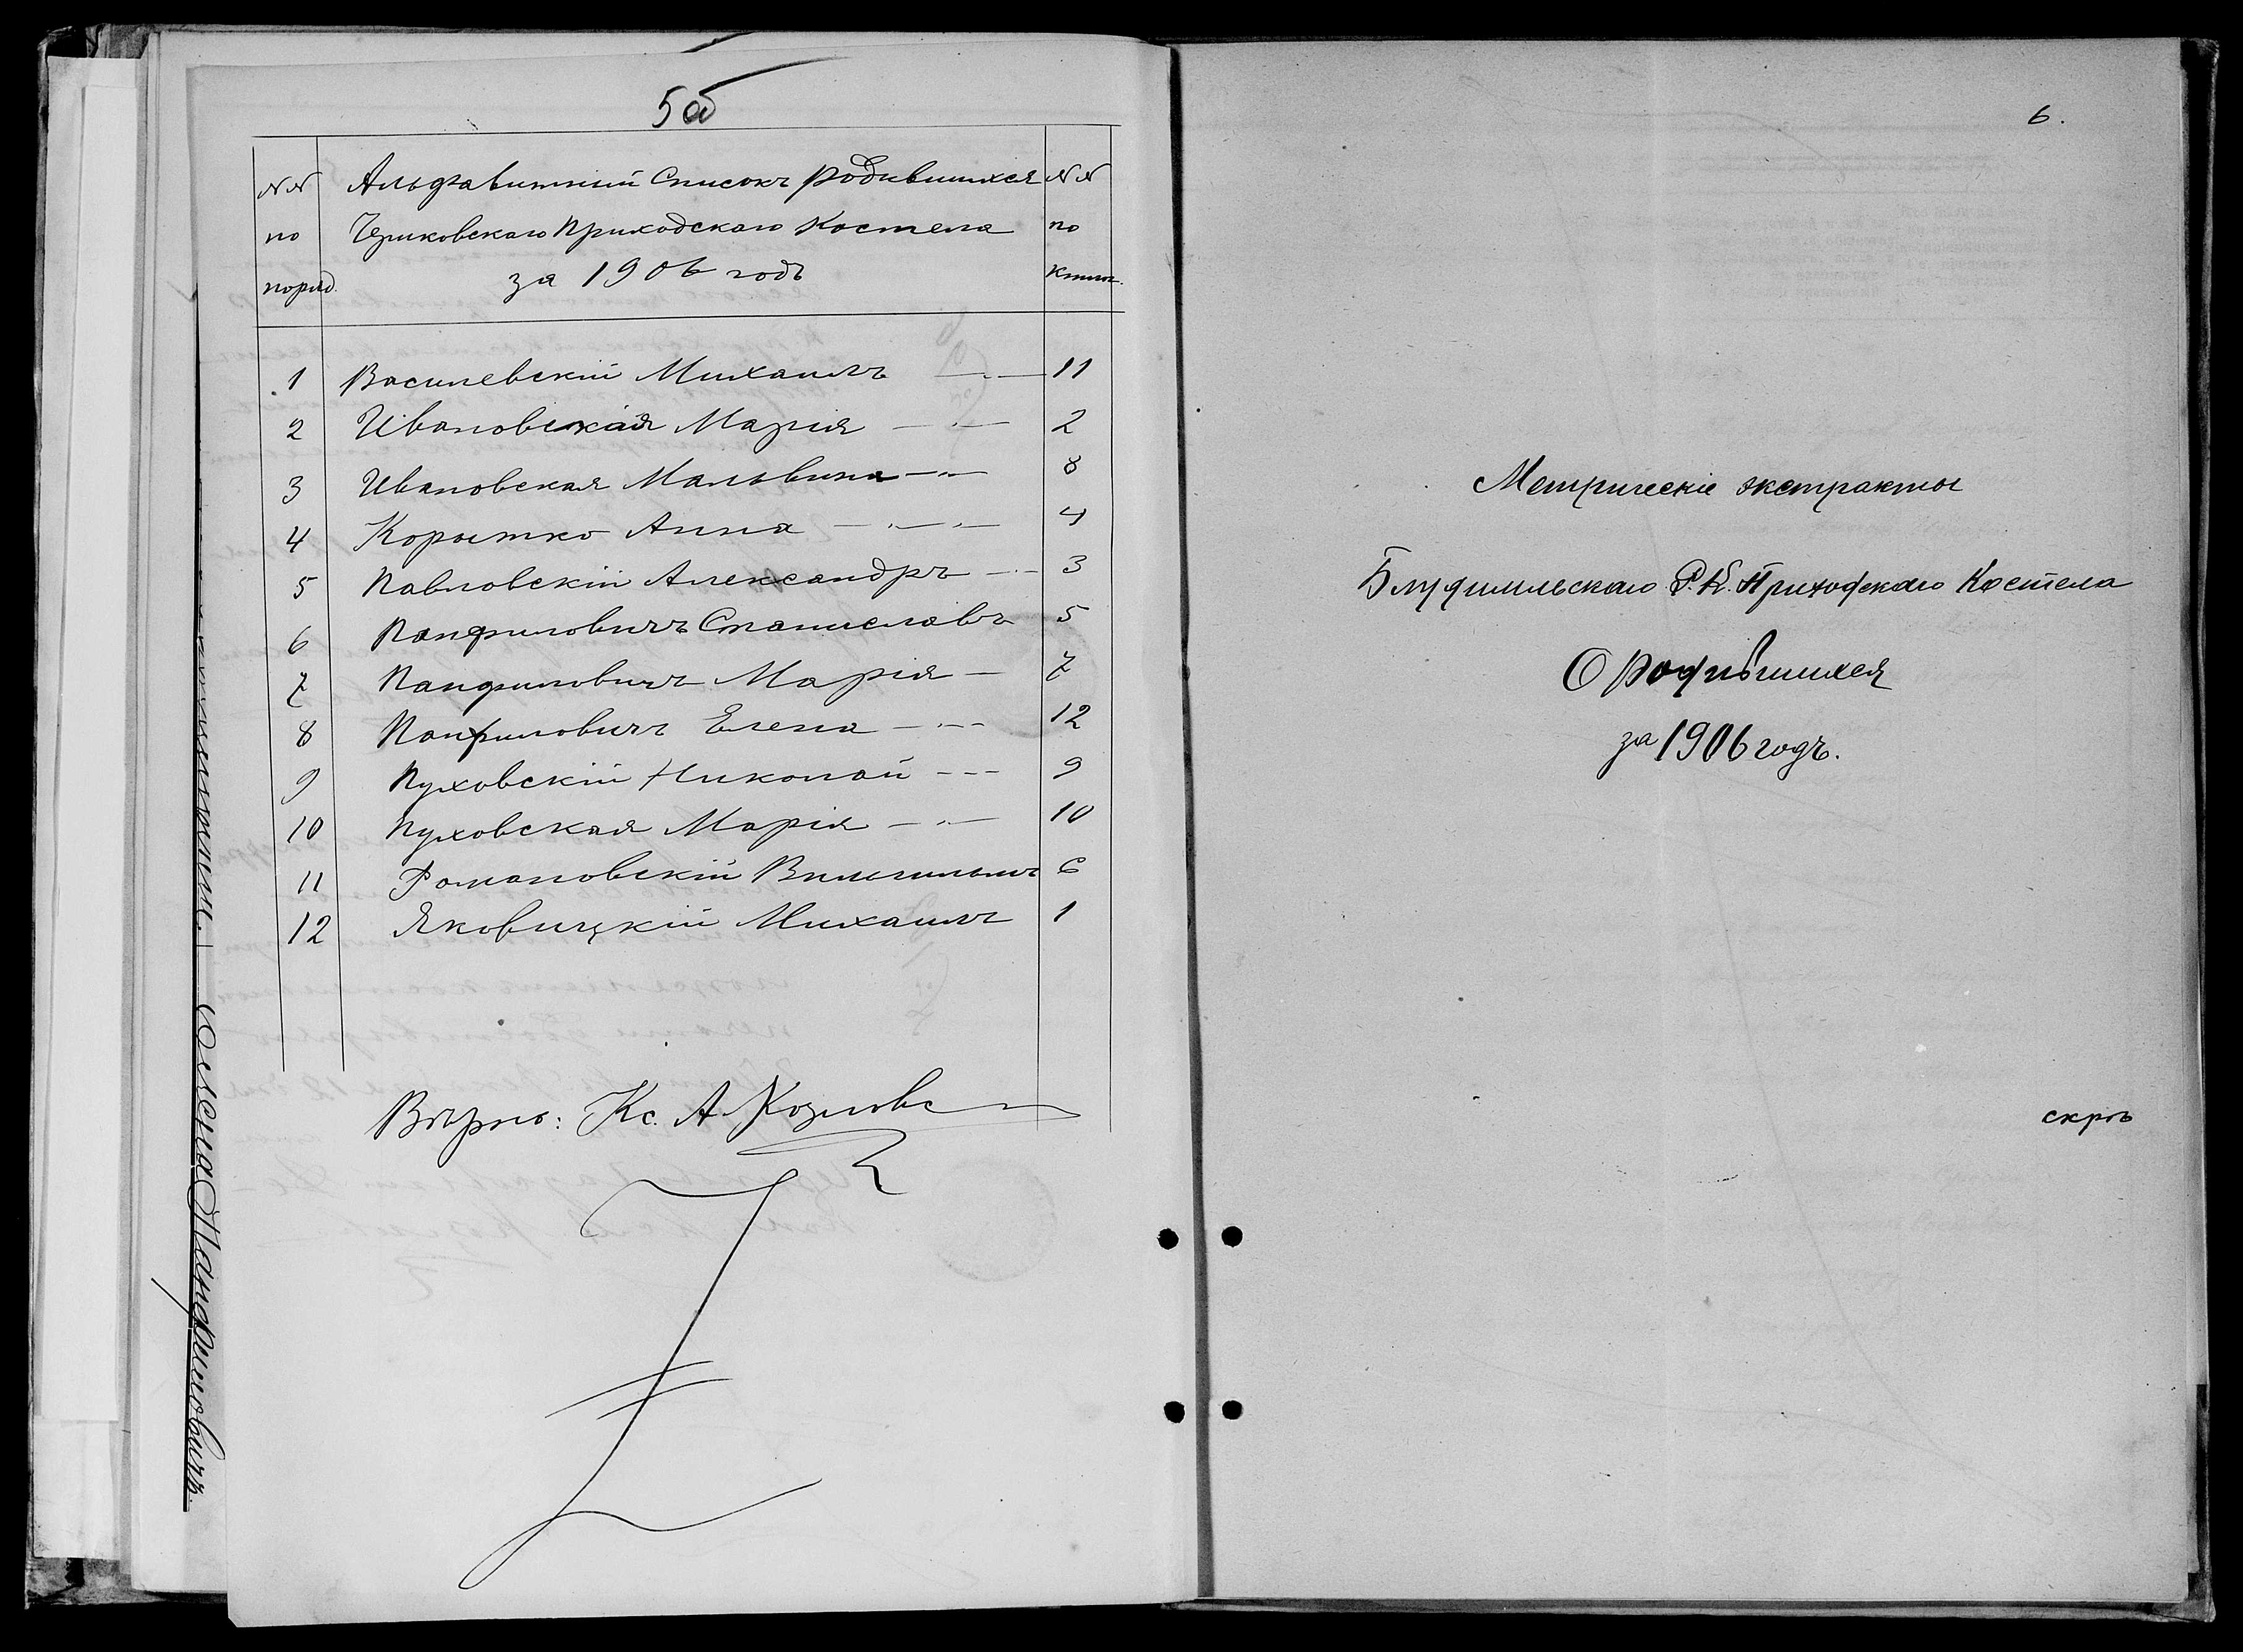 5об
№№ Альфавитный Списокъ родившихся №№
по Чериковскаго Приходскаго Костела по
поряд. за 1906 годъ книг.
1 Василевскій Михаилъ 11
2 Ивановская Марія 2
3 Ивановская Мальвина 8
4 Корытко Анна 4
5 Павловскій Александръ 3
6 Панфиловичъ Станиславъ 5
7 Панфиловичъ Марія 7
8 Панфиловичъ Елена 12
9 Пуховскій Николай 9
10 Пуховская Марія 10
11 Романовскій Вильгельмъ 6
12 Яковицкій Михаилъ 1
Вѣрно: Кс. А Козловс
Панфиловичъ.
6.
Метрическіе экстракты
Р. К. Приходскаго Костела
О родившихся
за 1906 годъ.
скрѣ